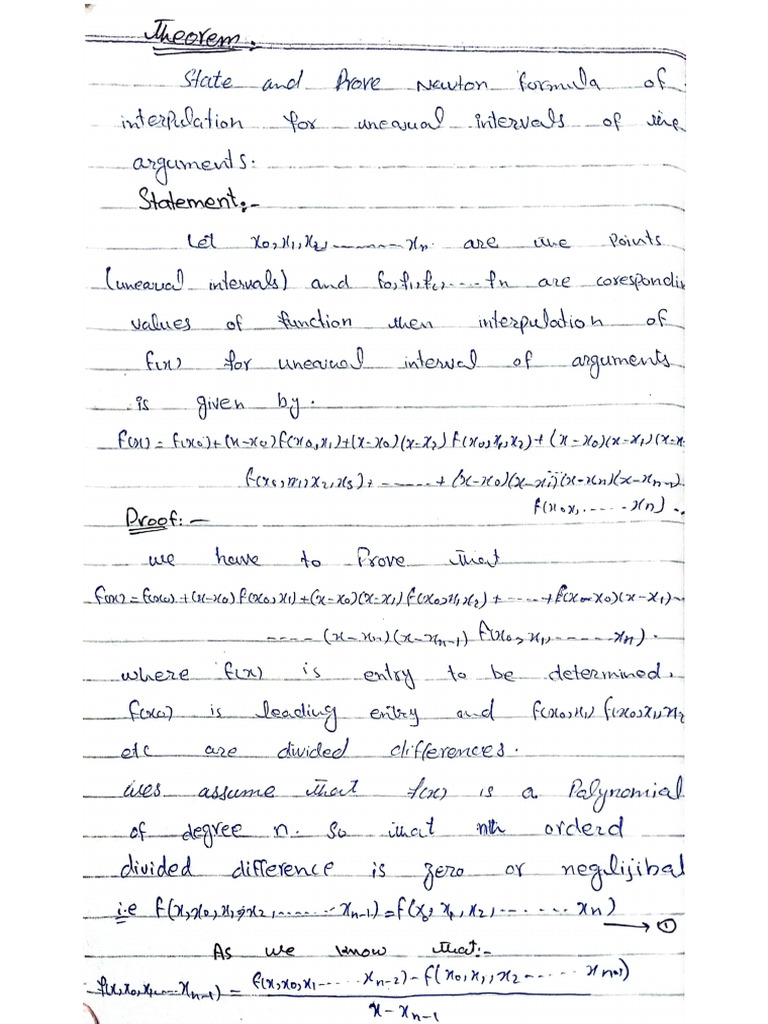 Theorem:
State and Prove Newton formula of
interpulation for unequal intervals of the
arguments:
Statement:-
Let x₀,x₁,x₂,-------xₙ are the points
(unequal intervals) and f₀,f₁,f₂,....fₙ are corespondin
values of function then interpulation of
f(x) for unequal interval of arguments
is given by.
f(x) = f(x₀)+(x-x₀)f(x₀,x₁)+(x-x₀)(x-x₂)f(x₀,x₁,x₂)+(x-x₀)(x-x₁)(x-x
f(x₀,x₁,x₂,x₃)+ ------+(x-x₀)(x-x₁)(x-xₙ)(x-xₙ₋₂)
f(x₀x,.....-xₙ)..
Proof:-
we have to Prove that
f(x)=f(x₀)+(x-x₀)f(x₀,x₁)+(x-x₀)(x-x₁)f(x₀,x₁,x₂)+-----+f(x-x₀)(x-x₁)-
----(x-xₙ)(x-xₙ₋₁) f(x₀,x₁,------xₙ).
where f(x) is entry to be determined.
f(x₀) is leading entry and f(x₀,x₁) f(x₀,x₁,x₂
etc are divided differences.
assume that f(x) is a Polynomial
of degree n. So that nth orderd
divided difference is zero or neglijibal
i.e f(x,x₀,x₁,x₂,.......xₙ₋₁)=f(x₀,x₁,x₂,------xₙ) → ①
As we know that:-
f(x,x₀,x₁,---xₙ₋₁) = f(x,x₀,x₁-----xₙ₋₂)-f(x₀,x₁,x₂-----xₙ₋₁)
x-xₙ₋₁